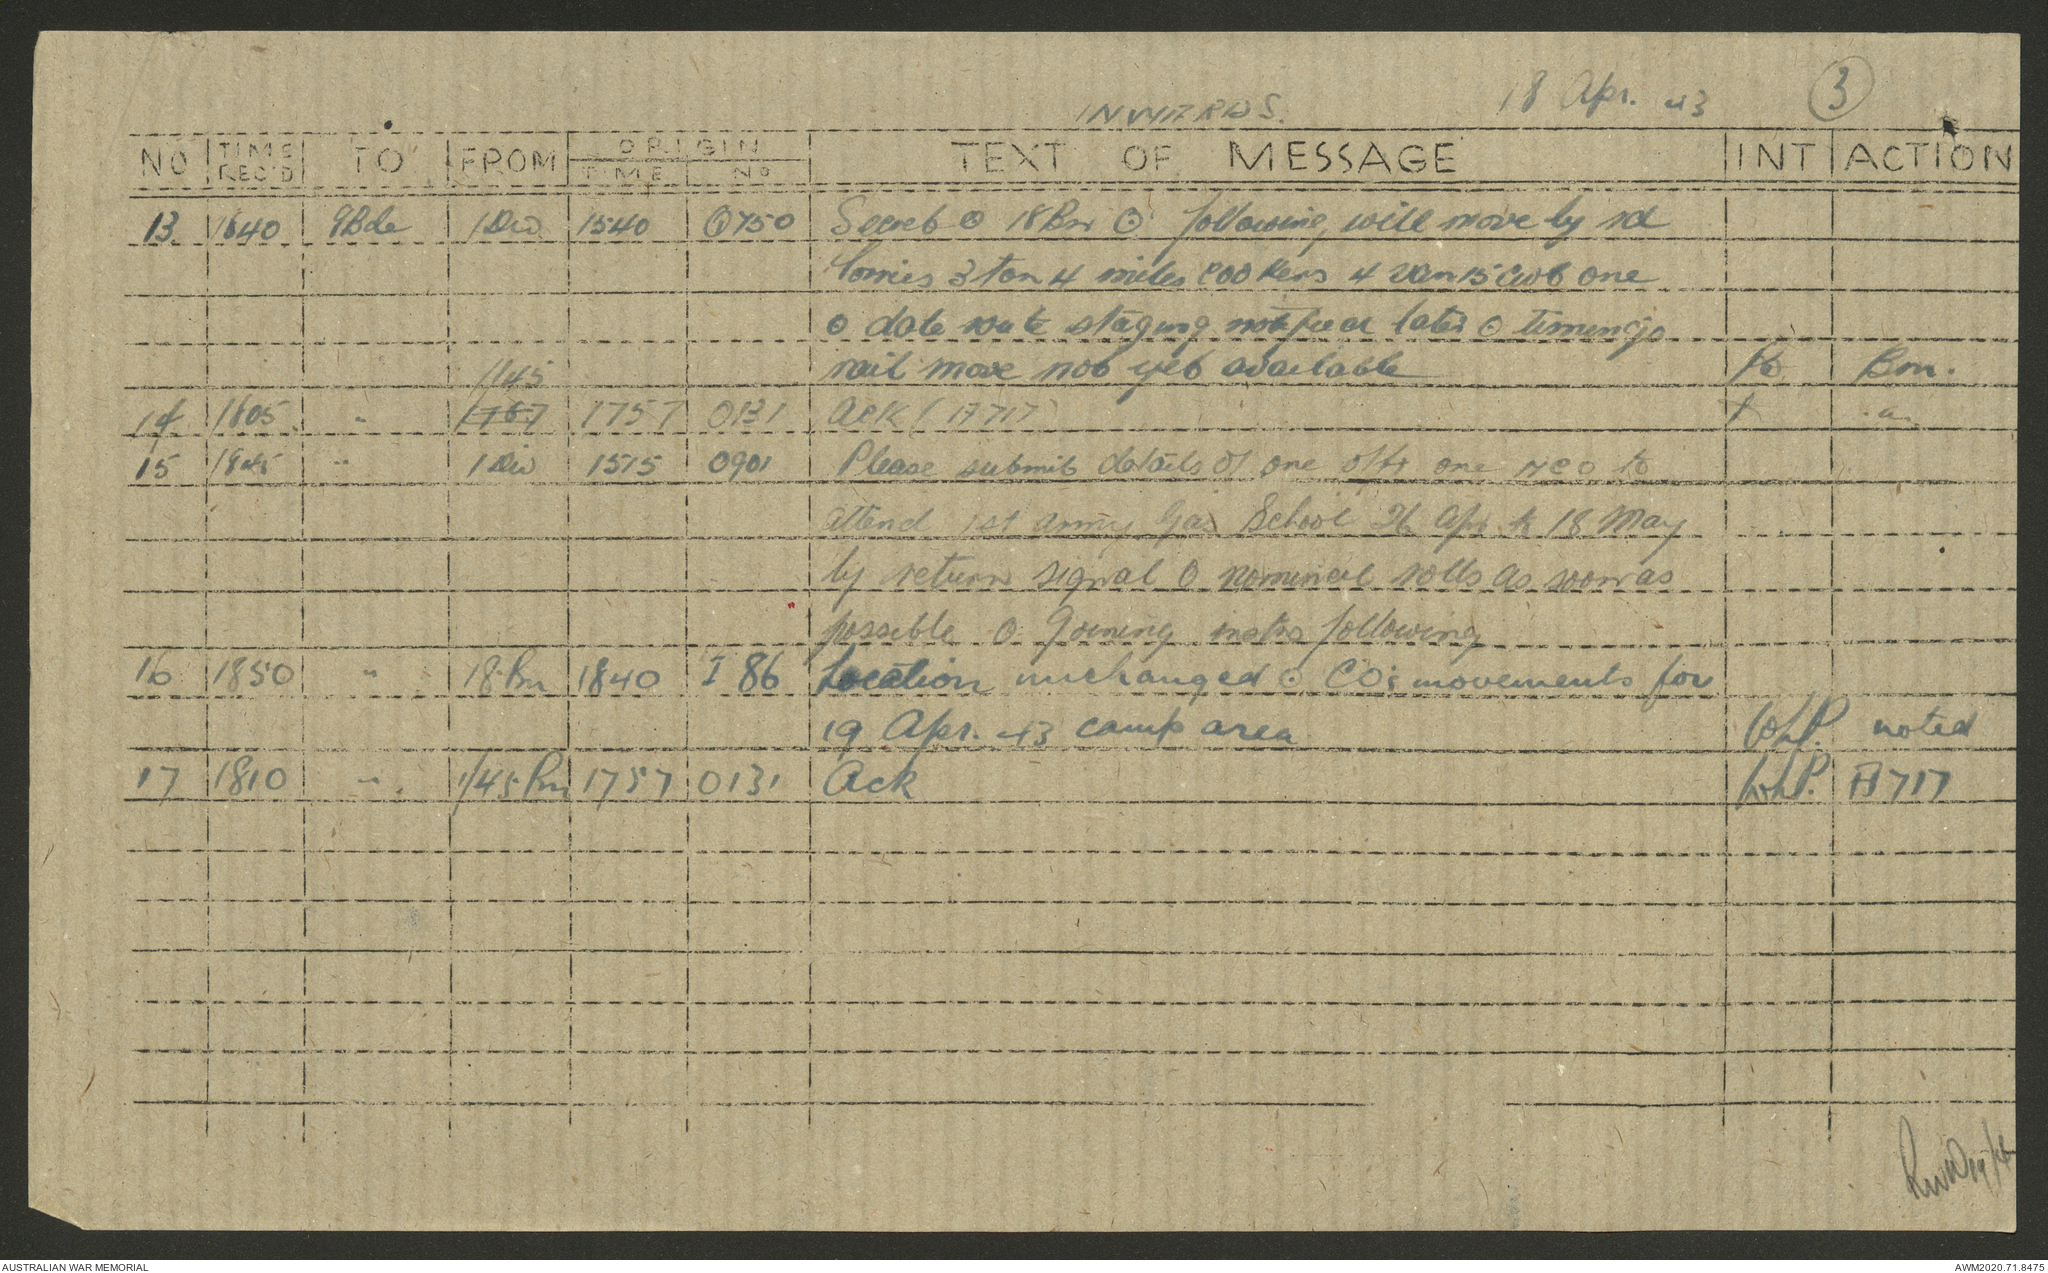 INWARDS. 18 Apr. 43 3
NO TIME REC'D TO FROM ORIGIN TIME NO TEXT OF MESSAGE INT ACTION
13 1640 9Bde 1 Div 1540 Q750 Secret ⊙ 18 Bn ⊙ following will move by rd
lorries 3 ton 4 cookers 4 van 15 cwt one
⊙ date route staging notified later ⊙ timings
rail move not yet available Bm.
1/45
14 1805 " 1757 0131 ack (A717)
15 1845 " 1 Div 1515 0901 Please submit details of one offr one nco to
attend 1st army Gas School 26 Apr to 18 May
by return signal O nominal rolls as soon as
possible O Joining instns following
16 1850 " 18 Bn 1840 I 86 Location unchanged ⊙ CO's movements for
19 Apr. 43 camp area noted
17 1810 " 1/45 Bn 1757 0131 Ack A717
AUSTRALIAN WAR MEMORIAL AWM2020.71.8475